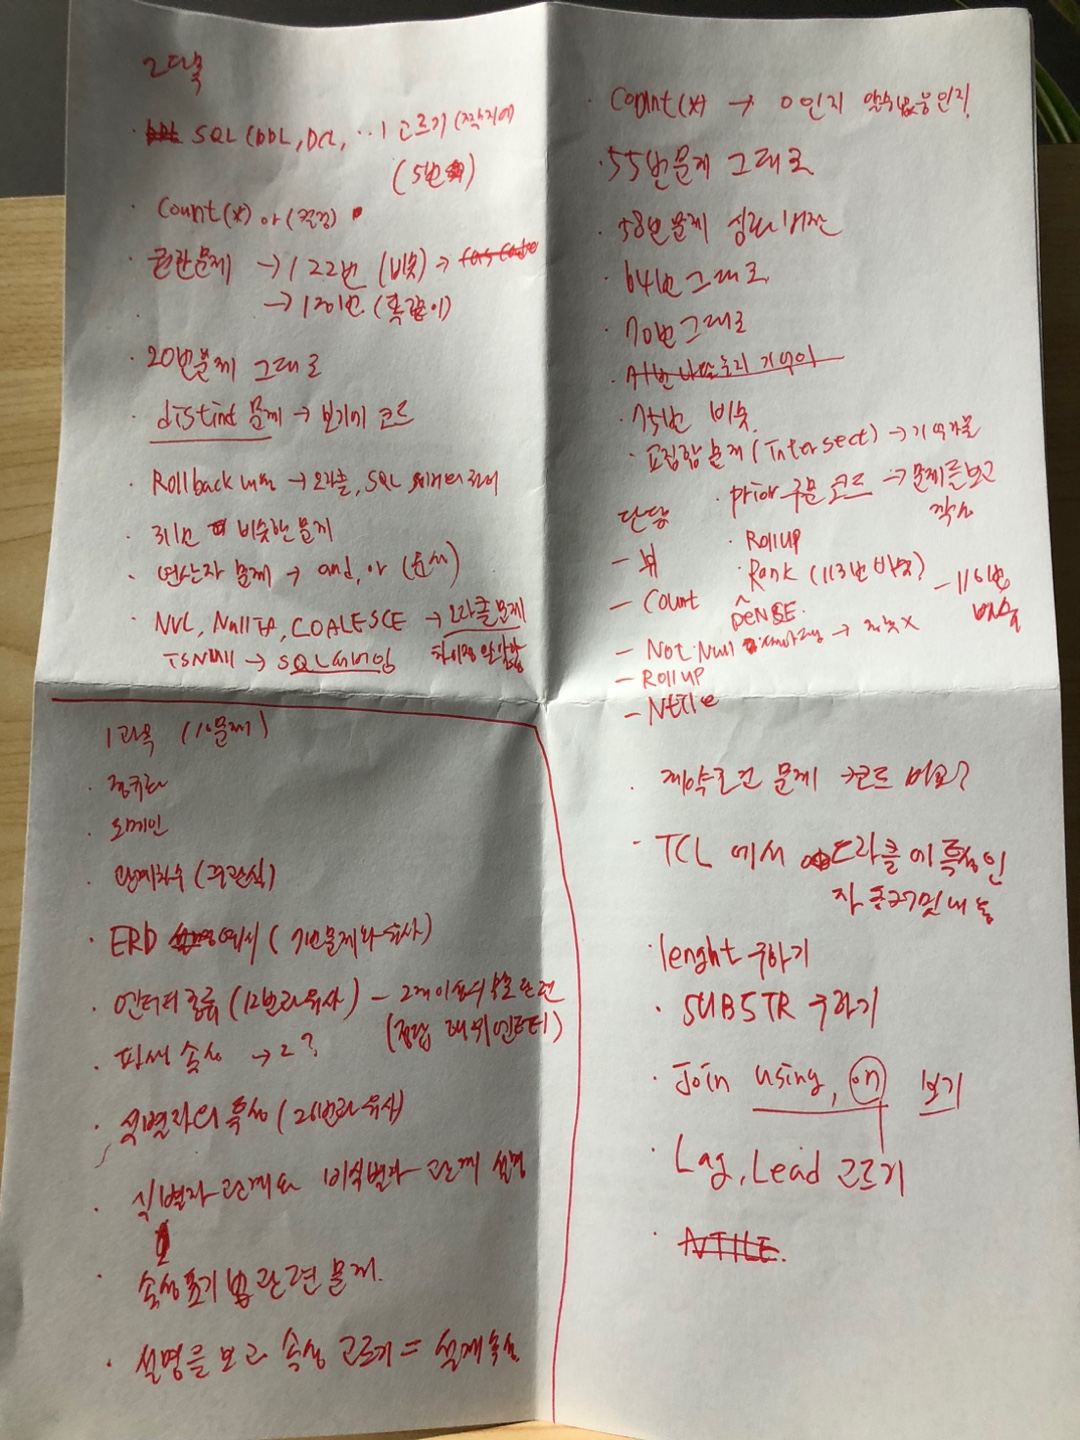 2과목
· SQL (DDL, DCL, ..) 고르기
(5번)
· Count(*) or (컬럼)
· 권한문제 → 122번 (비슷) →
→ 120번 (똑같이)
· 20번문제 그대로
· distinct 문제 → 보기가 코드
· Rollback → 오라클, SQL
· 31번 비슷한 문제
· 연산자 문제 → and, or (순서)
· NVL, Nullif, COALESCE → 오라클문제
ISNull → SQL서버임
· Count(*) → 0인지 알수없음인지
· 55번문제 그대로
· 58번문제 심화버전
· 64번 그대로
· 70번 그대로
· 75번 비슷
· 교집합 문제 (Intersect) →
· prior 구문 코드 → 문제를 보고
작성
단답
· Rollup
- 뷰
· Rank (113번 비슷)
DENSE
- 116번
비슷
- Count
- Not Null
- Rollup
- Ntile
1과목 (10문제)
· 정규화
· 도메인
· 관계차수 (주관식)
· ERD 에서 (7번문제와 유사)
· 엔터티 종류 (12번과 유사) - 2개 이상의
(정답 행위엔터티)
· 파생 속성 → 2?
· 식별자의 특성 (26번과 유사)
· 식별자 관계와 비식별자 관계 설명
· 속성표기법 관련 문제.
· 설명을 보고 속성 고르기 = 설계속성
· 제약조건 문제 → 코드
- TCL 에서 오라클이 특성인
lenght 구하기
· SUBSTR 구하기
· Join using, on 보기
· Lag, Lead 고르기
· NTILE.